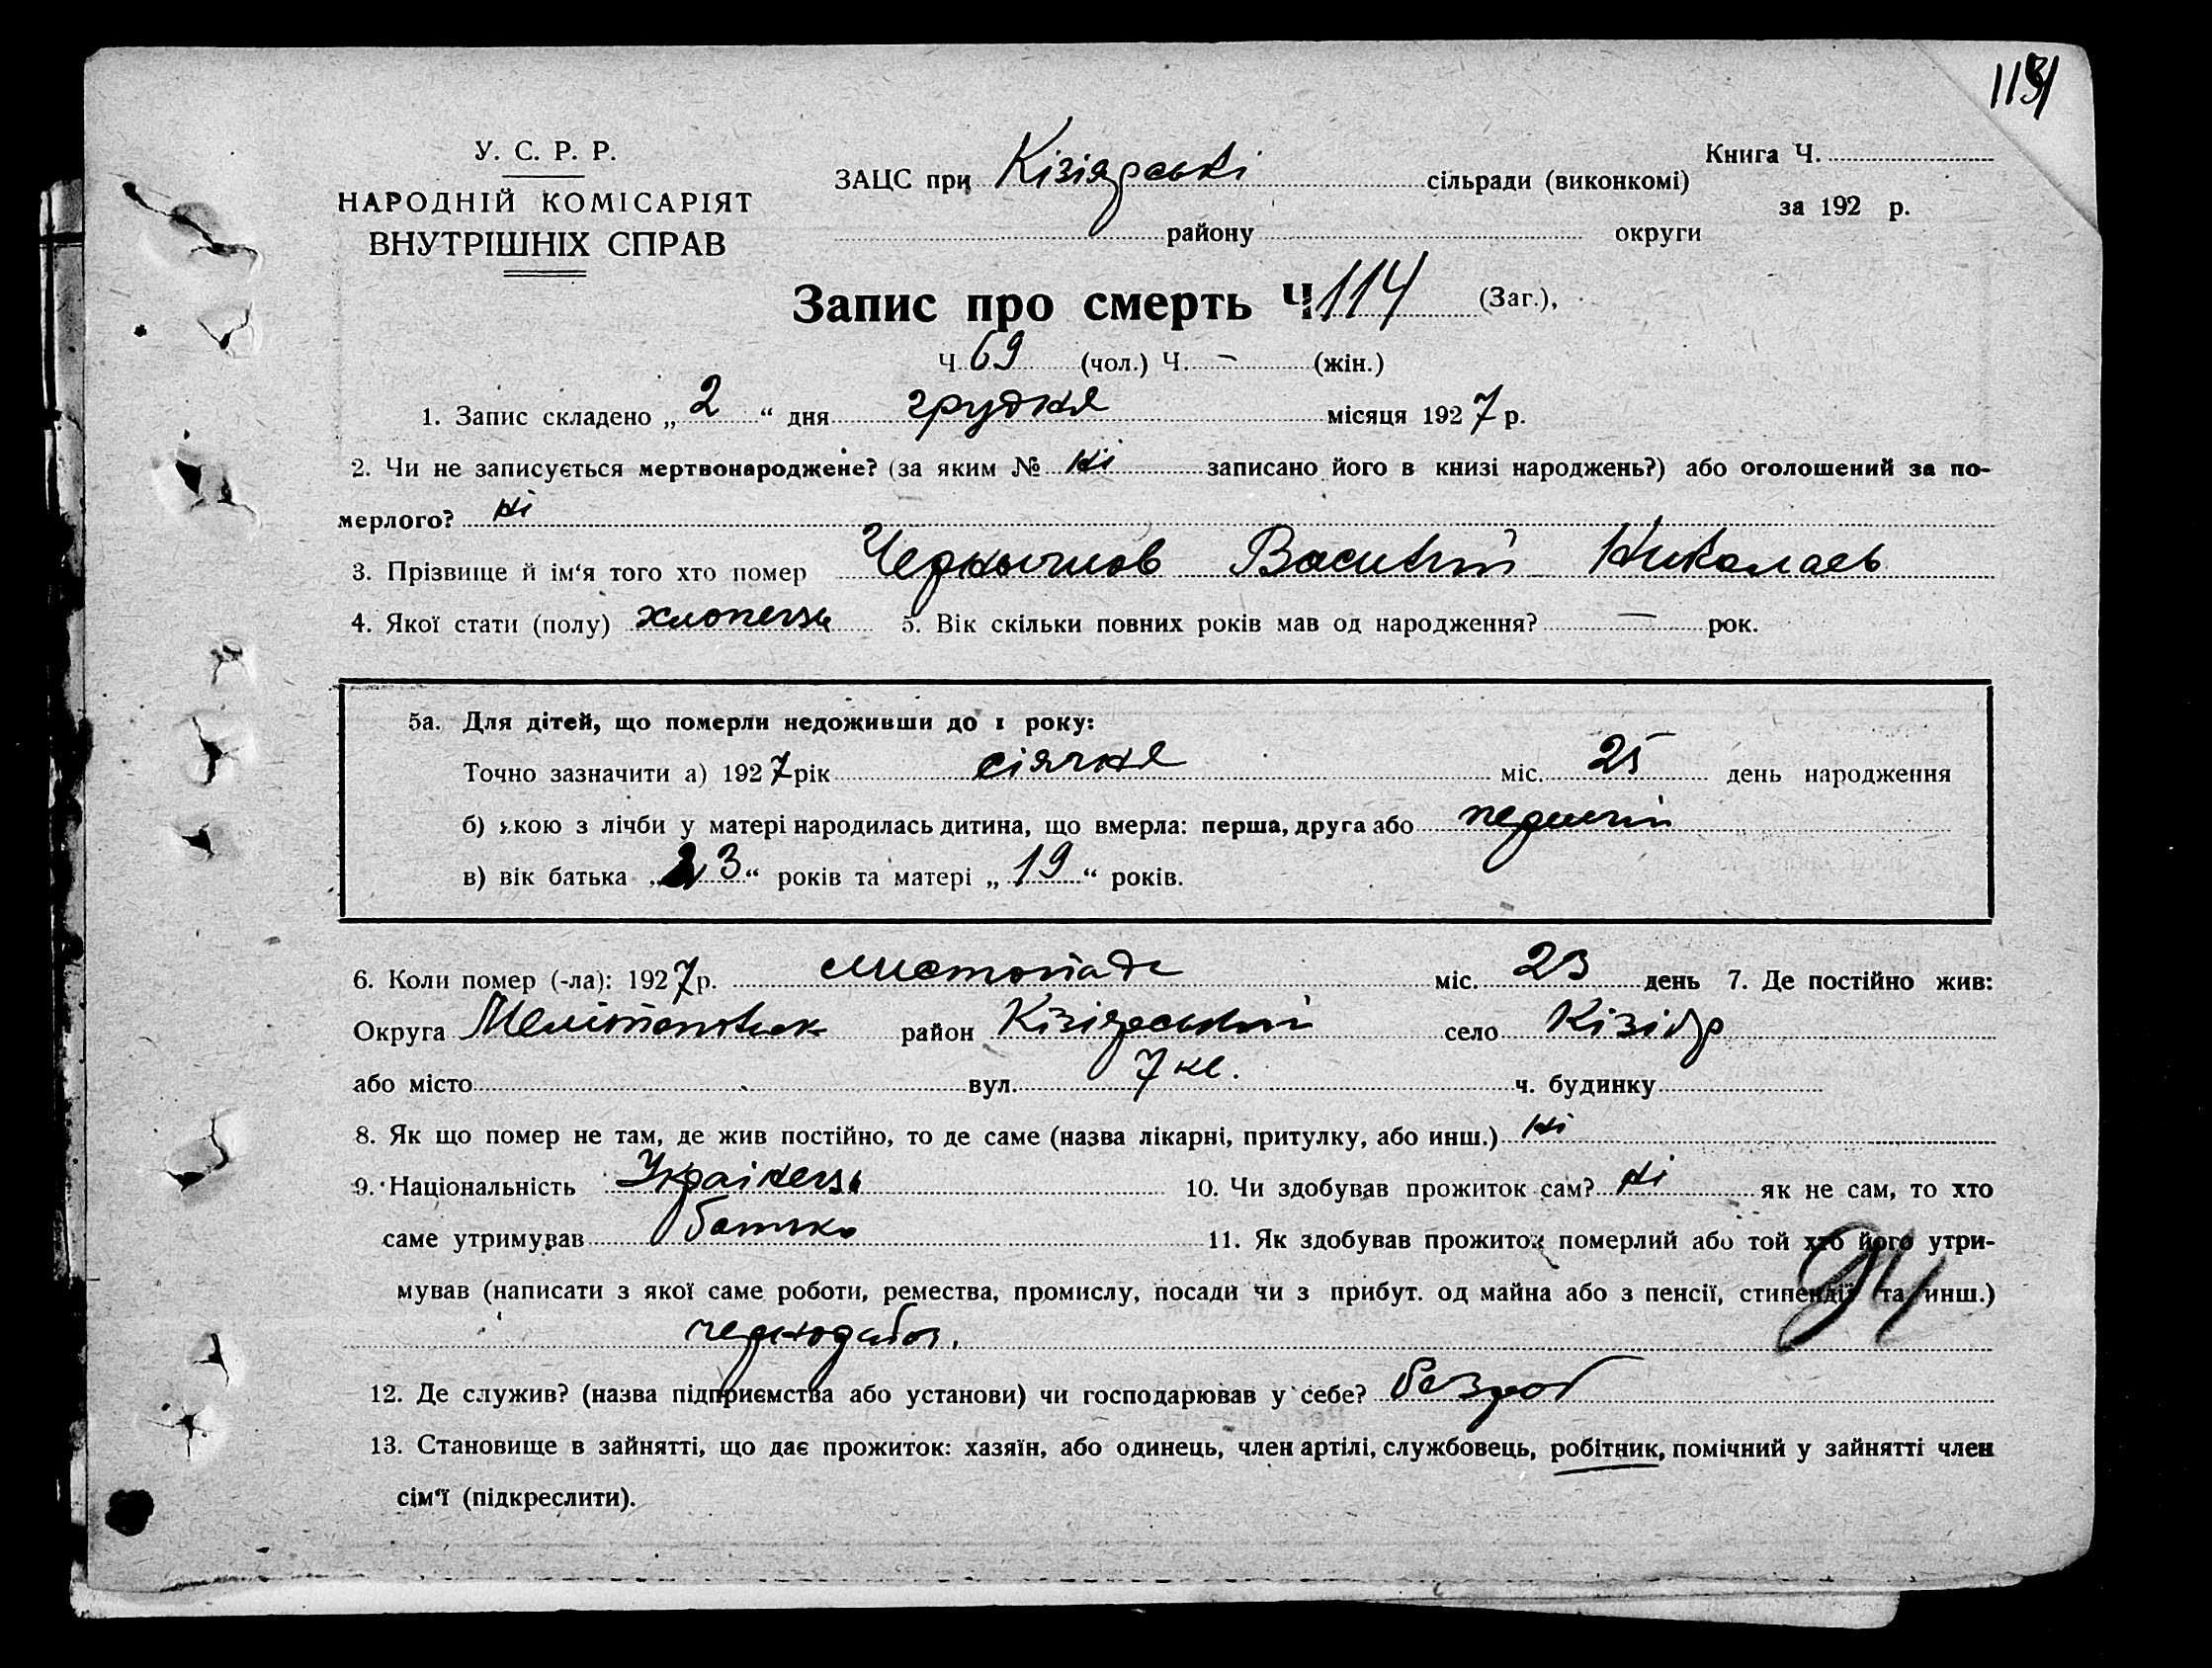 У. С. Р. Р.
НАРОДНІЙ КОМІСАРІЯТ
ВНУТРІШНІХ СПРАВ
ЗАЦС при Кізіярські сільради (виконкомі)
району округи
Книга Ч.
за 192 р.
Запис про смерть Ч. 114 (Заг.),
Ч. 69 (чол.) Ч. — (жін.)
1. Запис складено „ 2 “ дня грудня місяця 1927 р.
2. Чи не записується мертвонароджене? (за яким № ні записано його в книзі народжень?) або оголошений за по-
мерлого? ні
3. Прізвище й ім‘я того хто помер Василий Николаев
4. Якої стати (полу) хлопець 5. Вік скільки повних років мав од народження? — рок.
5а. Для дітей, що померли недоживши до 1 року:
Точно зазначити а) 1927 рік січня міс. 25 день народження
б) якою з лічби у матері народилась дитина, що вмерла: перша, друга або
в) вік батька „ 23 “ років та матері „ 19 “ років.
6. Коли помер (-ла): 1927 р. листопаде міс. 23 день 7. Де постійно жив:
Округа Мелітопольск район Кізіярський село Кізіяр
або місто вул. 7 ч. будинку
8. Як що помер не там, де жив постійно, то де саме (назва лікарні, притулку, або инш.) ні
9. Національність Українець 10. Чи здобував прожиток сам? ні як не сам, то хто
саме утримував батько 11. Як здобував прожиток померлий або той хто його утри-
мував (написати з якої саме роботи, ремества, промислу, посади чи з прибут. од майна або з пенсії, стипендії та инш.)
чернораб.
12. Де служив? (назва підприємства або установи) чи господарював у себе? безроб
13. Становище в зайнятті, що дає прожиток: хазяїн, або одинець, член артілі, службовець, робітник, помічний у зайнятті член
сім‘ї (підкреслити).